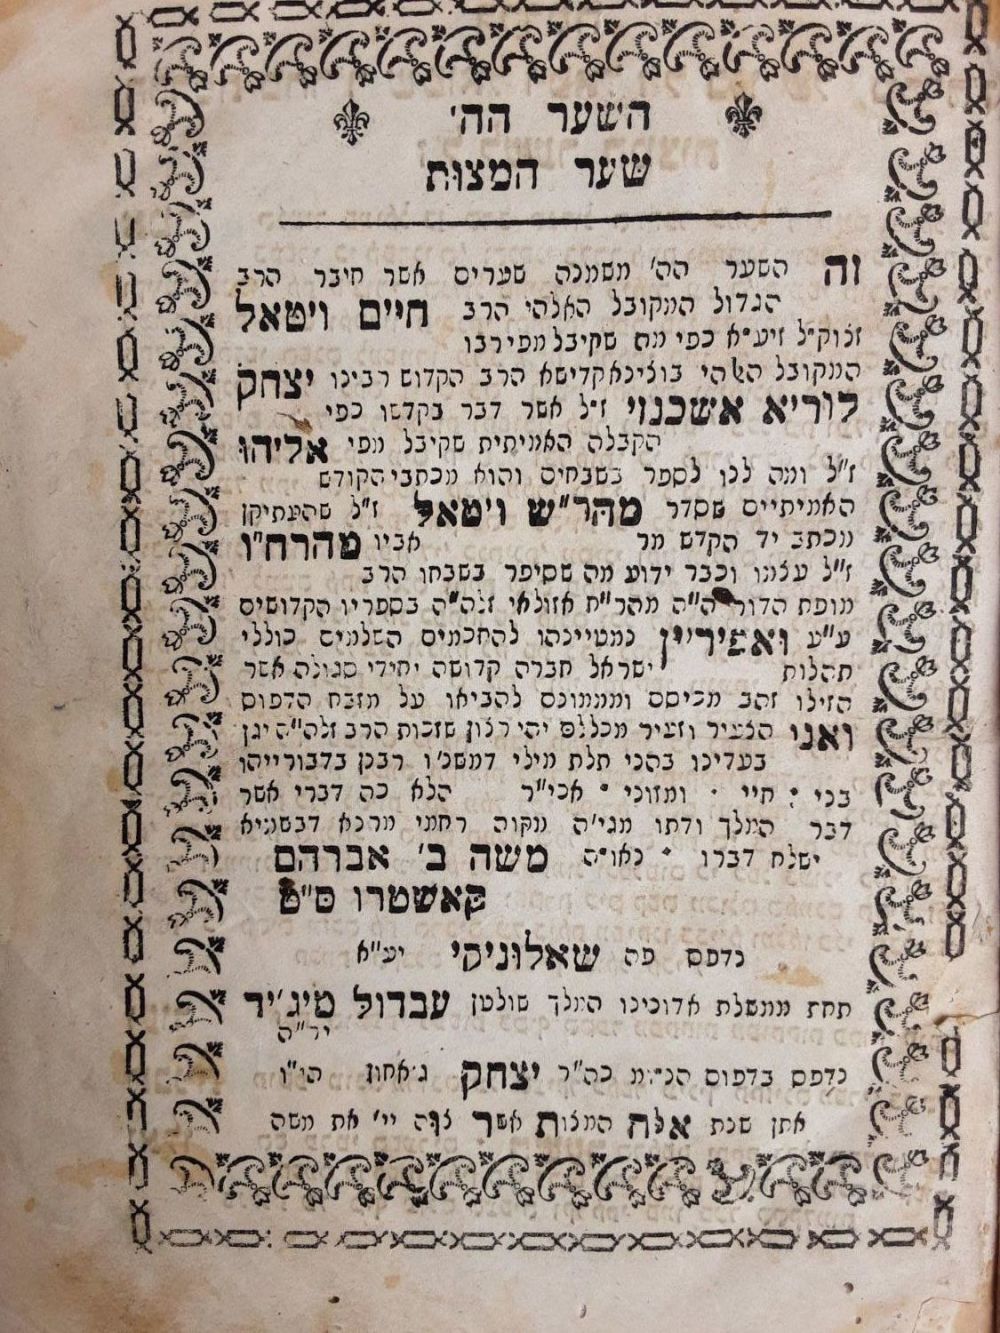 השער הה'
שער המצות
זה השער הה' משמנה שערים אשר חיבר הרב
הגדול המקובל האלהי הרב חיים ויטאל
זלוק"ל זיע"א כפי מה שקיבל מפי רבו
המקובל האלהי בוצינא קדישא הרב הקדוש רבינו יצחק
לוריא אשכנזי ז"ל אשר דבר בקדשו כפי
הקבלה האמיתית שקיבל מפי אליהו
ז"ל ומה לנו לספר בשבחים והוא מכתבי הקודש
האמיתיים שסדר מהר"ש ויטאל ז"ל שהעתיקן
מכתב יד הקדש מר אביו מהרח"ו
ז"ל עצמו וכבר ידוע מה שסיפר בשבחו הרב
מופת הדור ה"ה מהר"ח אזולאי זלה"ה בספריו הקדושים
ע"ע ואפיריין נמטייניהו להחכמים השלמים כוללי
תהלות ישראל חברה קדושה יחידי סגולה אשר
הזילו זהב מכיסם וממונם להביאו על מזבח הדפוס
ואני הצעיר וזעיר מכללם יהי רצון שזכות הרב זלה"ה יגן
בעדינו בהני תלת מילי דמשכ'ו רבנן בדבורייהו
בני : חיי · ומזוני · אכי"ר הלא כה דברי אשר
דבר המלך ודתו מגי'ה מקוה רחמי מרנא דבשמיא
ישלח דברו · נאו"ה משה ב' אברהם
קאשטרו ס"ט
נדפס פה שאלוניקי יע"א
תחת ממשלת אדונינו המלך שולטן עבדול מיג'יד
יר"ה
נדפס בדפוס הנ"מ כה"ר יצחק ג'אחון הי"ו
אתן שנת אלה המצות אשר צוה יי' את משה